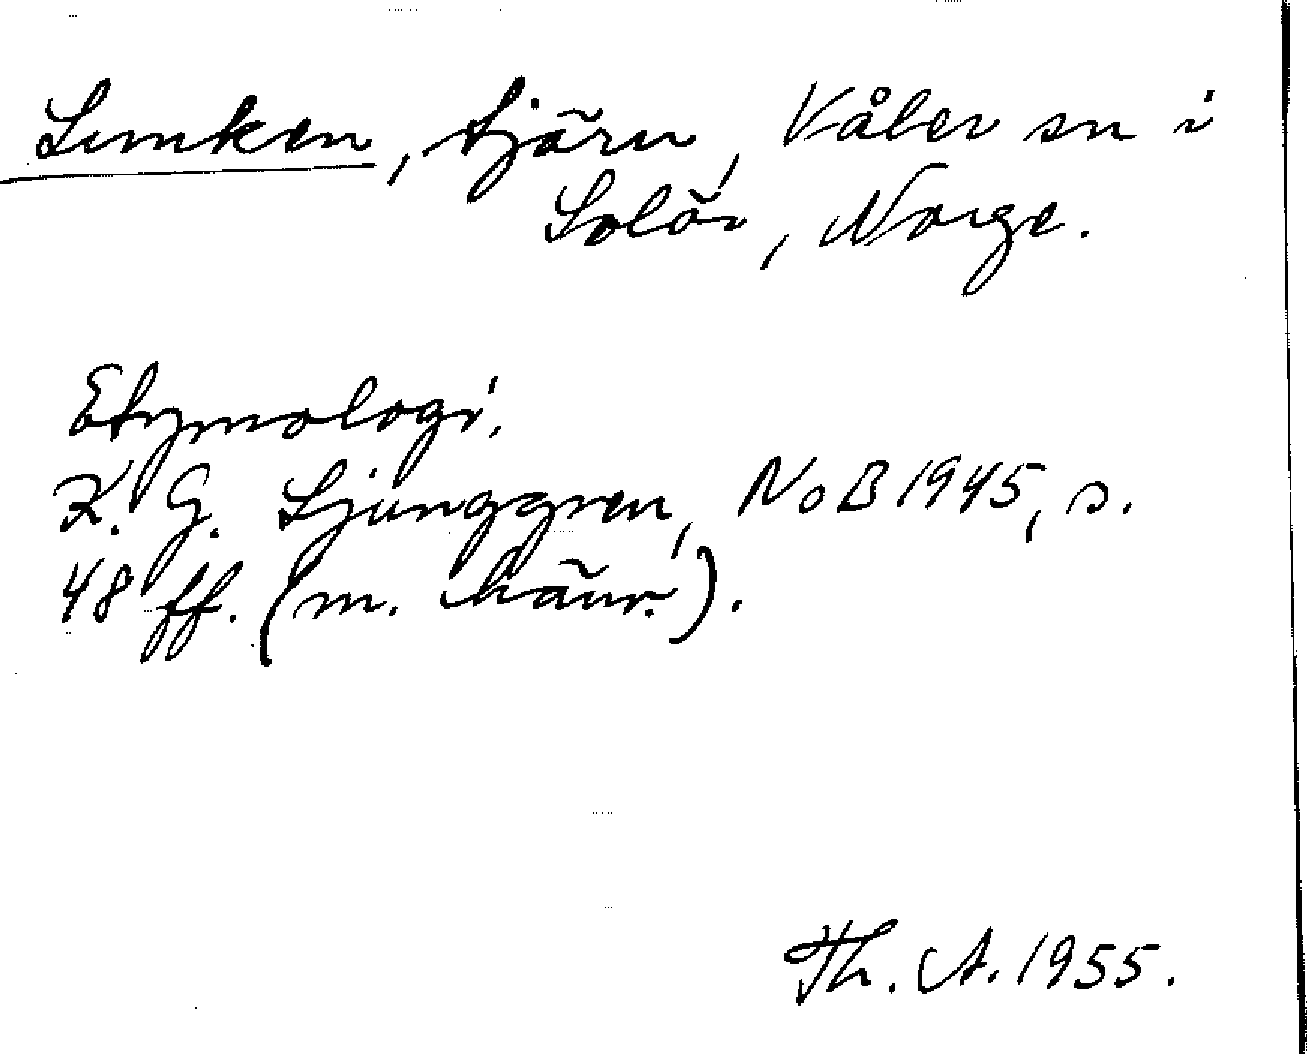 Limken, tjärn, Våler sn i
Solör, Norge.
Etymologi.
K. G. Ljunggren, NoB 1945, s.
48 ff. (m. hänv.).
Th. A. 1955.